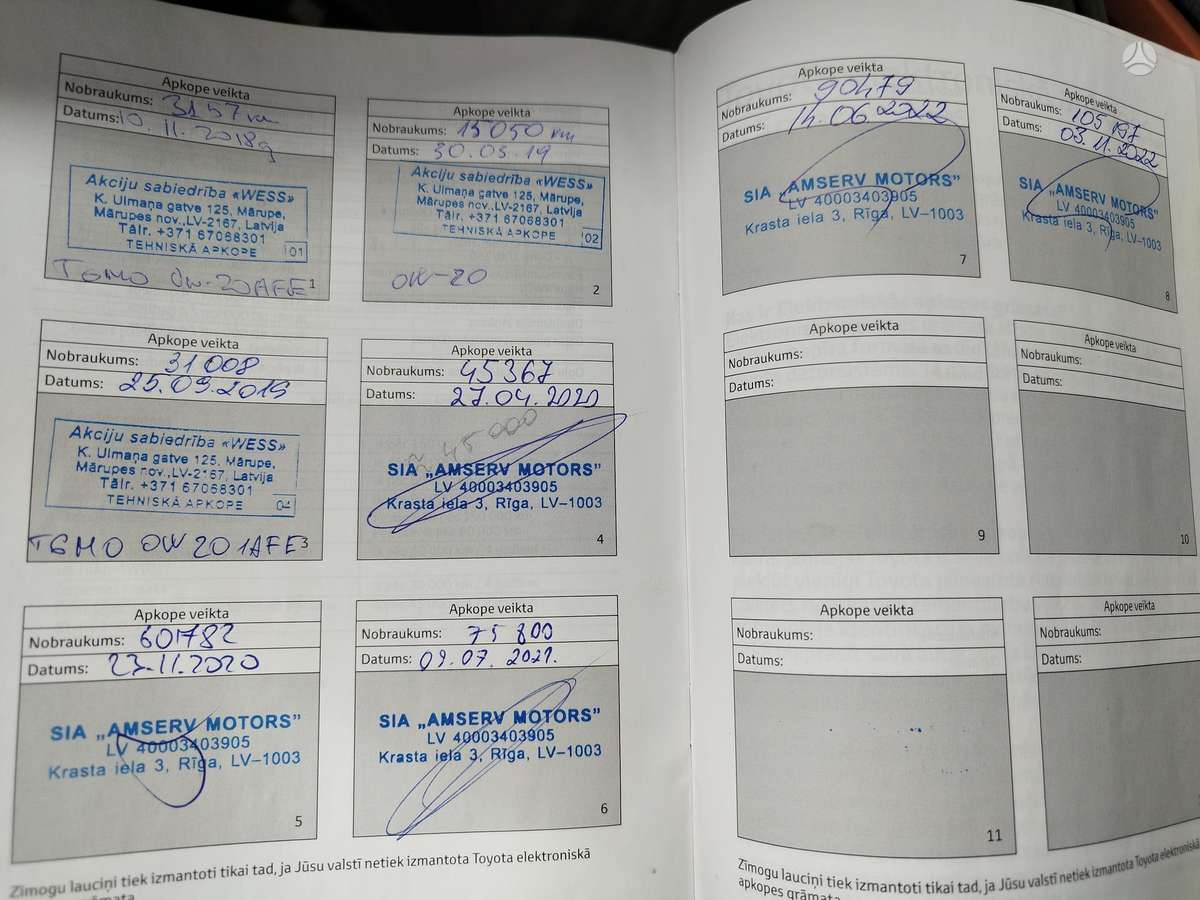 Apkope veikta
Nobraukums: 3157 km
Datums: 10. 11. 2018g
Akciju sabiedrība «WESS»
K. Ulmaņa gatve 125, Mārupe,
Mārupes nov.,LV-2167, Latvija
Tālr. +371 67068301
TEHNISKĀ APKOPE 01
TGMO 0W-20AFE 1
Apkope veikta
Nobraukums: 15050 km
Datums: 30.03.19
Akciju sabiedrība «WESS»
K. Ulmaņa gatve 125, Mārupe,
Mārupes nov.,LV-2167, Latvija
Tālr. +371 67068301
TEHNISKĀ APKOPE 02
0W-20
2
Apkope veikta
Nobraukums: 31008
Datums: 25.09.2019
Akciju sabiedrība «WESS»
K. Ulmaņa gatve 125, Mārupe,
Mārupes nov.,LV-2167, Latvija
Tālr. +371 67068301
TEHNISKĀ APKOPE 04
TGMO 0W 20 1AFE 3
Apkope veikta
Nobraukums: 45367
Datums: 27.04.2020
~ 45 000
SIA „AMSERV MOTORS”
LV 40003403905
Krasta iela 3, Rīga, LV–1003
4
Apkope veikta
Nobraukums: 601782
Datums: 23.11.2020
SIA „AMSERV MOTORS”
LV 40003403905
Krasta iela 3, Rīga, LV–1003
5
Apkope veikta
Nobraukums: 75 800
Datums: 09.07. 2021.
SIA „AMSERV MOTORS”
LV 40003403905
Krasta iela 3, Rīga, LV–1003
6
Zīmogu lauciņi tiek izmantoti tikai tad, ja Jūsu valstī netiek izmantota Toyota elektroniskā
Apkope veikta
Nobraukums: 90479
Datums: 14.06 2022
SIA „AMSERV MOTORS”
LV 40003403905
Krasta iela 3, Rīga, LV–1003
7
Apkope veikta
Nobraukums: 105 197
Datums: 03.11.2022
SIA „AMSERV MOTORS”
LV 40003403905
Krasta iela 3, Rīga, LV–1003
8
Apkope veikta
Nobraukums:
Datums:
9
Apkope veikta
Nobraukums:
Datums:
10
Apkope veikta
Nobraukums:
Datums:
11
Apkope veikta
Nobraukums:
Datums:
Zīmogu lauciņi tiek izmantoti tikai tad, ja Jūsu valstī netiek izmantota Toyota elektroniskā
apkopes grāmata